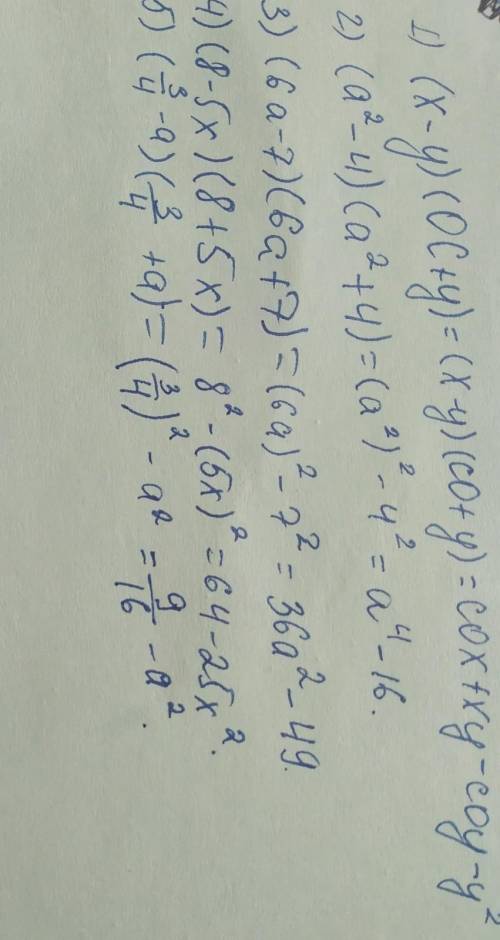 1) (x-y)(0C+y)=(x-y)(c0+y)=c0x+xy-c0y-y²
2) (a²-4)(a²+4)=(a²)²-4²=a⁴-16.
3) (6a-7)(6a+7)=(6a)²-7²=36a²-49.
4) (8-5x)(8+5x)=8²-(5x)²=64-25x².
5) (3/4-a)(3/4+a)=(3/4)²-a²=9/16-a².